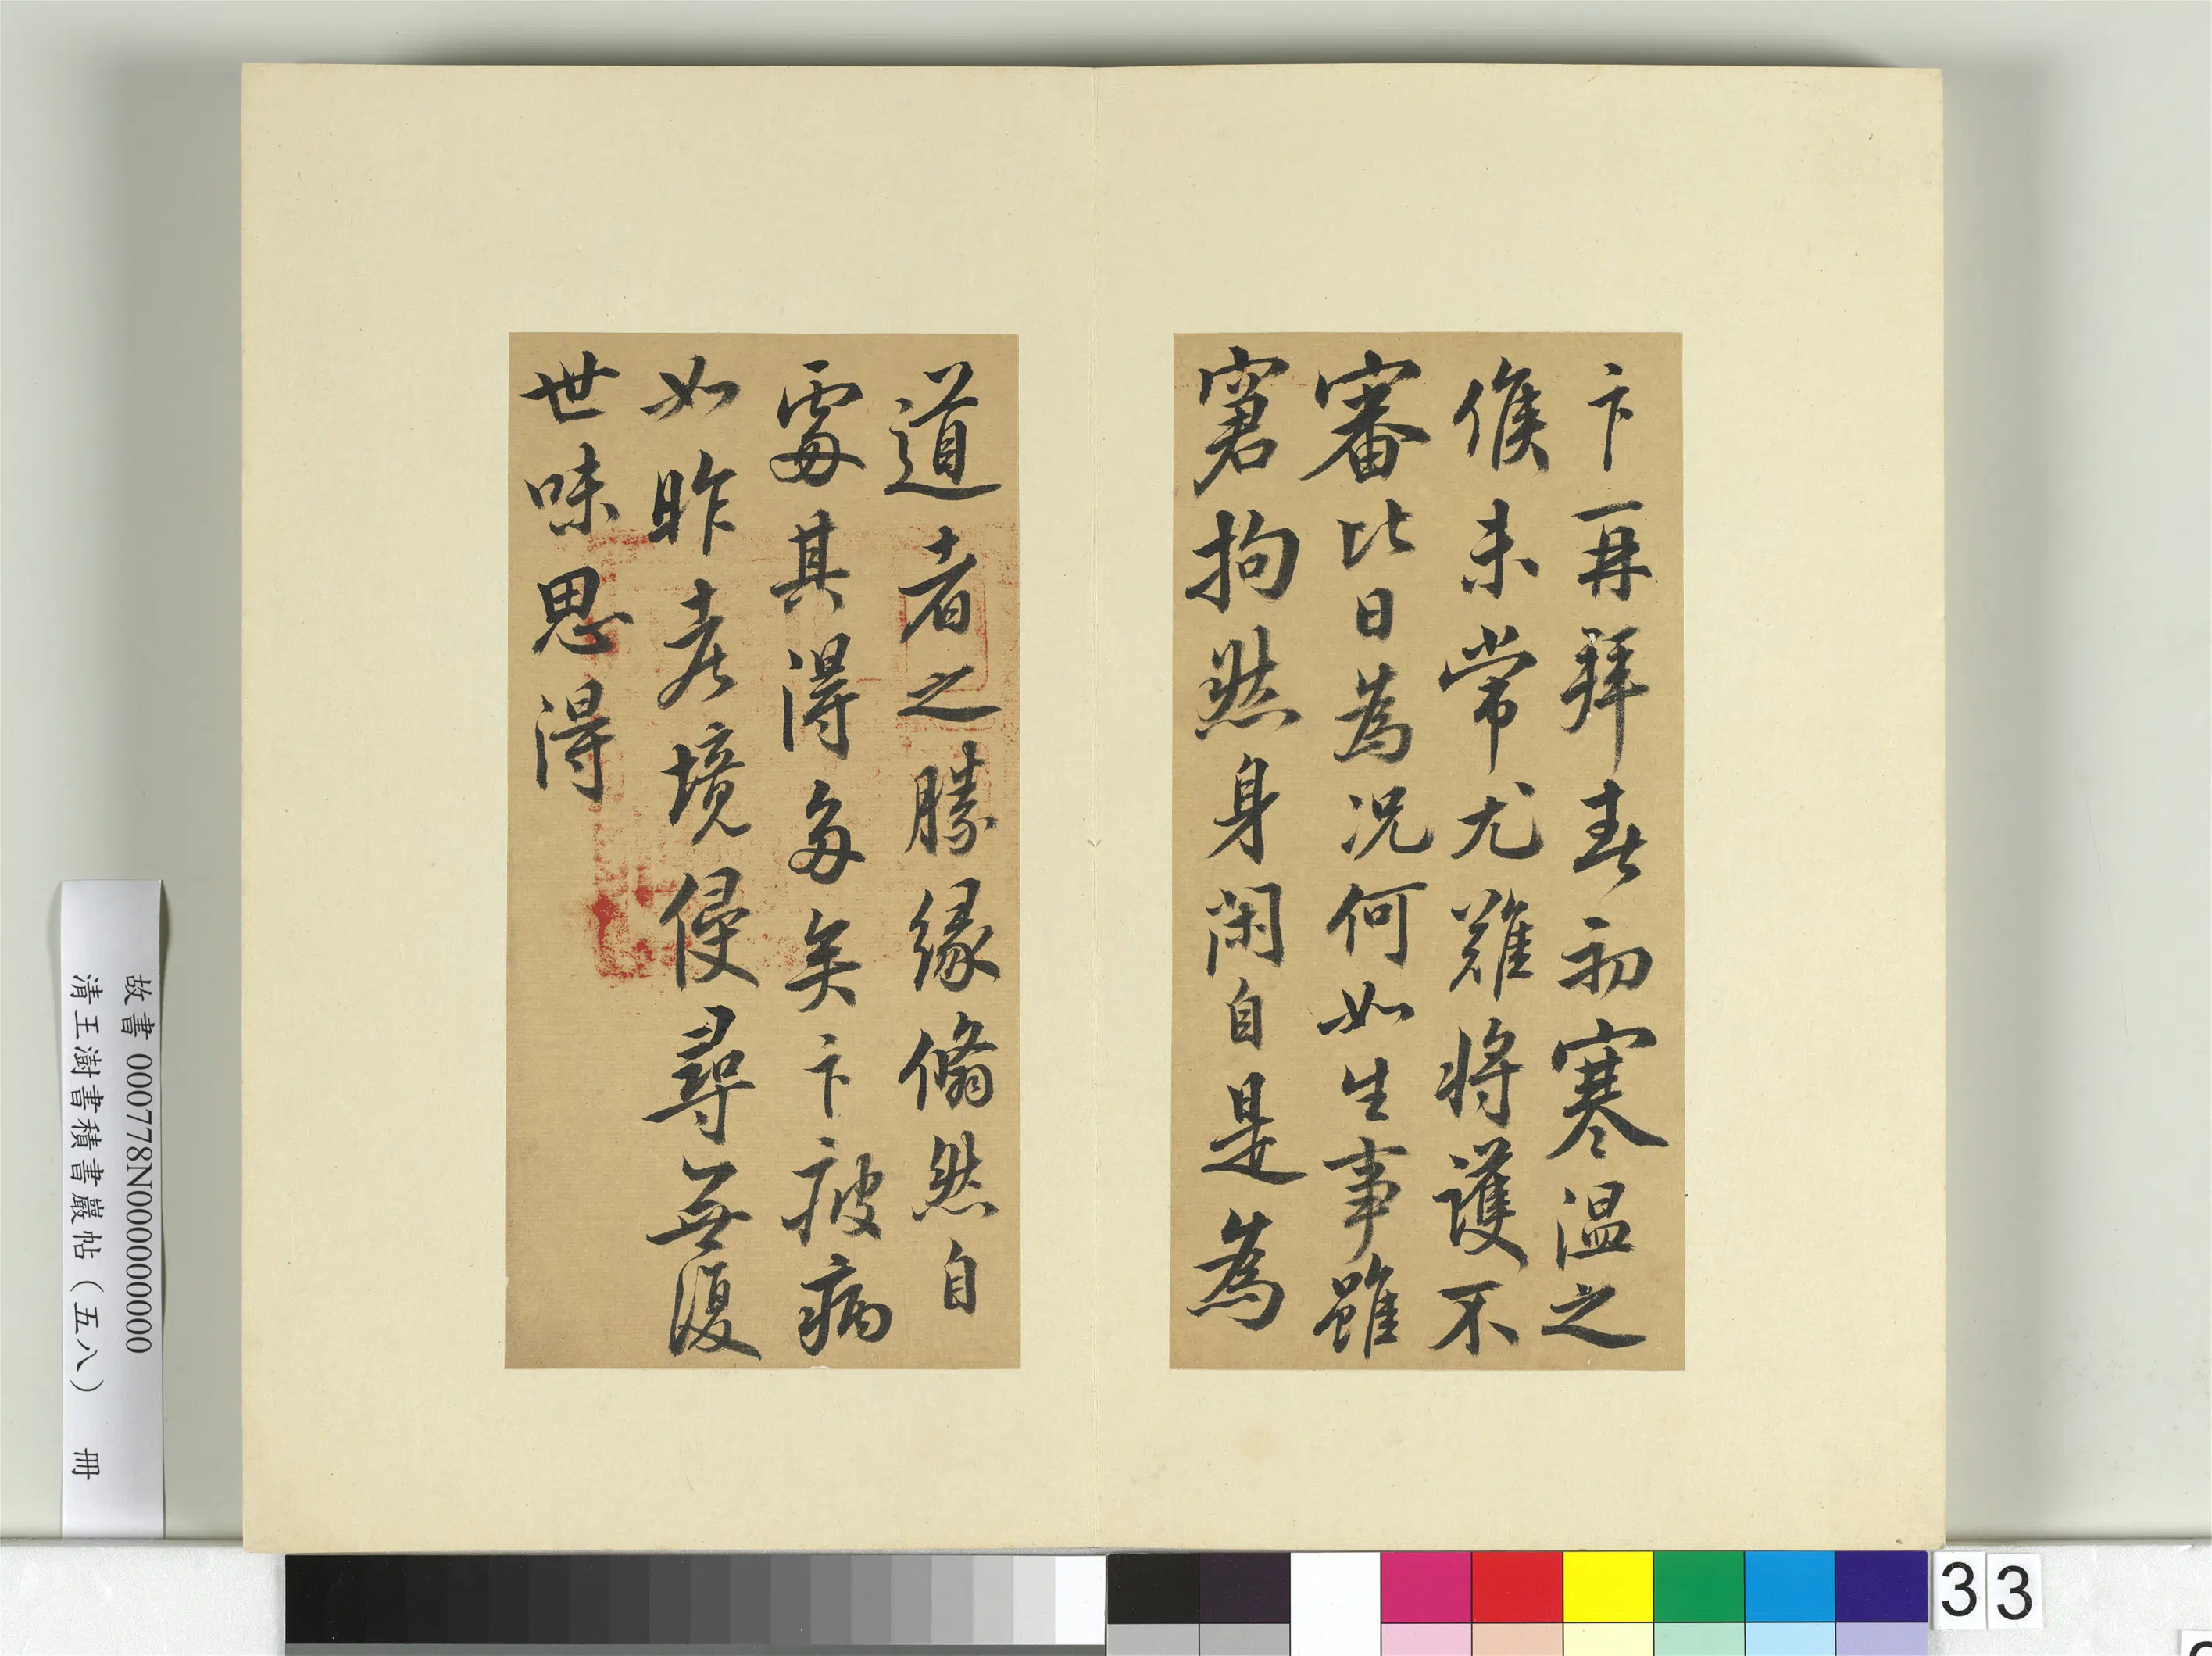 卞再拜春初寒溫之
候未常尤難將護不
審比日為況何如生事雖
窘拘然身閑自是為
道者之勝緣翛然自
處其得多矣卞疲病
如昨老境侵尋無復
世味思得
故書 000778N000000000
清王澍書積書巖帖（五八） 冊
33